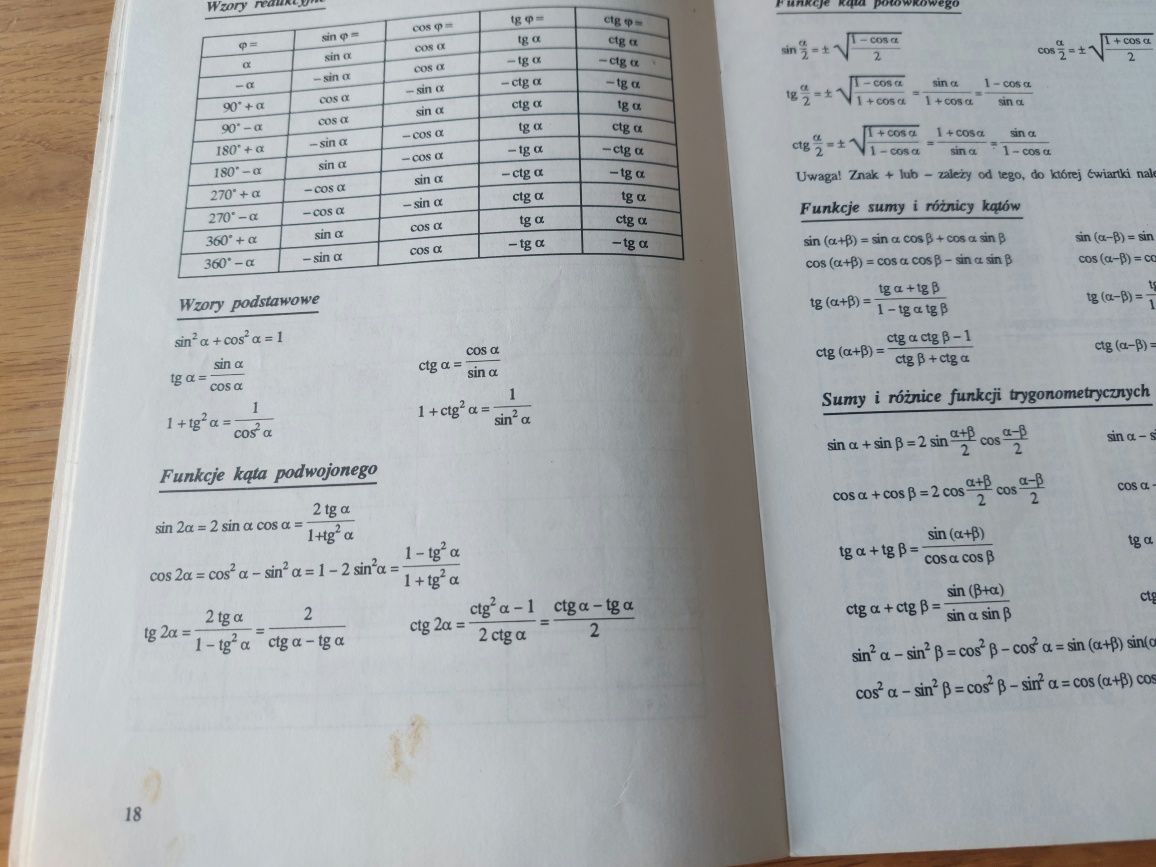 Wzory redukcyjne
φ = sin φ = cos φ = tg φ = ctg φ =
α sin α cos α tg α ctg α
− α − sin α cos α − tg α − ctg α
90° + α cos α − sin α − ctg α − tg α
90° − α cos α sin α ctg α tg α
180° + α − sin α − cos α tg α ctg α
180° − α sin α − cos α − tg α − ctg α
270° + α − cos α sin α − ctg α − tg α
270° − α − cos α − sin α ctg α tg α
360° + α sin α cos α tg α ctg α
360° − α − sin α cos α − tg α − tg α
Wzory podstawowe
sin² α + cos² α = 1
tg α = sin α / cos α ctg α = cos α / sin α
1 + tg² α = 1 / cos² α 1 + ctg² α = 1 / sin² α
Funkcje kąta podwojonego
sin 2α = 2 sin α cos α = 2 tg α / 1+tg² α
cos 2α = cos² α − sin² α = 1 − 2 sin²α = 1 − tg² α / 1 + tg² α
tg 2α = 2 tg α / 1 − tg² α = 2 / ctg α − tg α ctg 2α = ctg² α − 1 / 2 ctg α = ctg α − tg α / 2
18
Funkcje kąta połówkowego
sin α/2 = ± √(1 − cos α / 2) cos α/2 = ± √(1 + cos α / 2)
tg α/2 = ± √(1 − cos α / 1 + cos α) = sin α / 1 + cos α = 1 − cos α / sin α
ctg α/2 = ± √(1 + cos α / 1 − cos α) = 1 + cos α / sin α = sin α / 1 − cos α
Uwaga! Znak + lub − zależy od tego, do której ćwiartki nale
Funkcje sumy i różnicy kątów
sin (α+β) = sin α cos β + cos α sin β sin (α−β) = sin
cos (α+β) = cos α cos β − sin α sin β cos (α−β) = co
tg (α+β) = tg α + tg β / 1 − tg α tg β tg (α−β) = tg / 1
ctg (α+β) = ctg α ctg β − 1 / ctg β + ctg α ctg (α−β) =
Sumy i różnice funkcji trygonometrycznych
sin α + sin β = 2 sin α+β/2 cos α−β/2 sin α − s
cos α + cos β = 2 cos α+β/2 cos α−β/2 cos α −
tg α + tg β = sin (α+β) / cos α cos β tg α
ctg α + ctg β = sin (β+α) / sin α sin β ctg
sin² α − sin² β = cos² β − cos² α = sin (α+β) sin(α
cos² α − sin² β = cos² β − sin² α = cos (α+β) cos